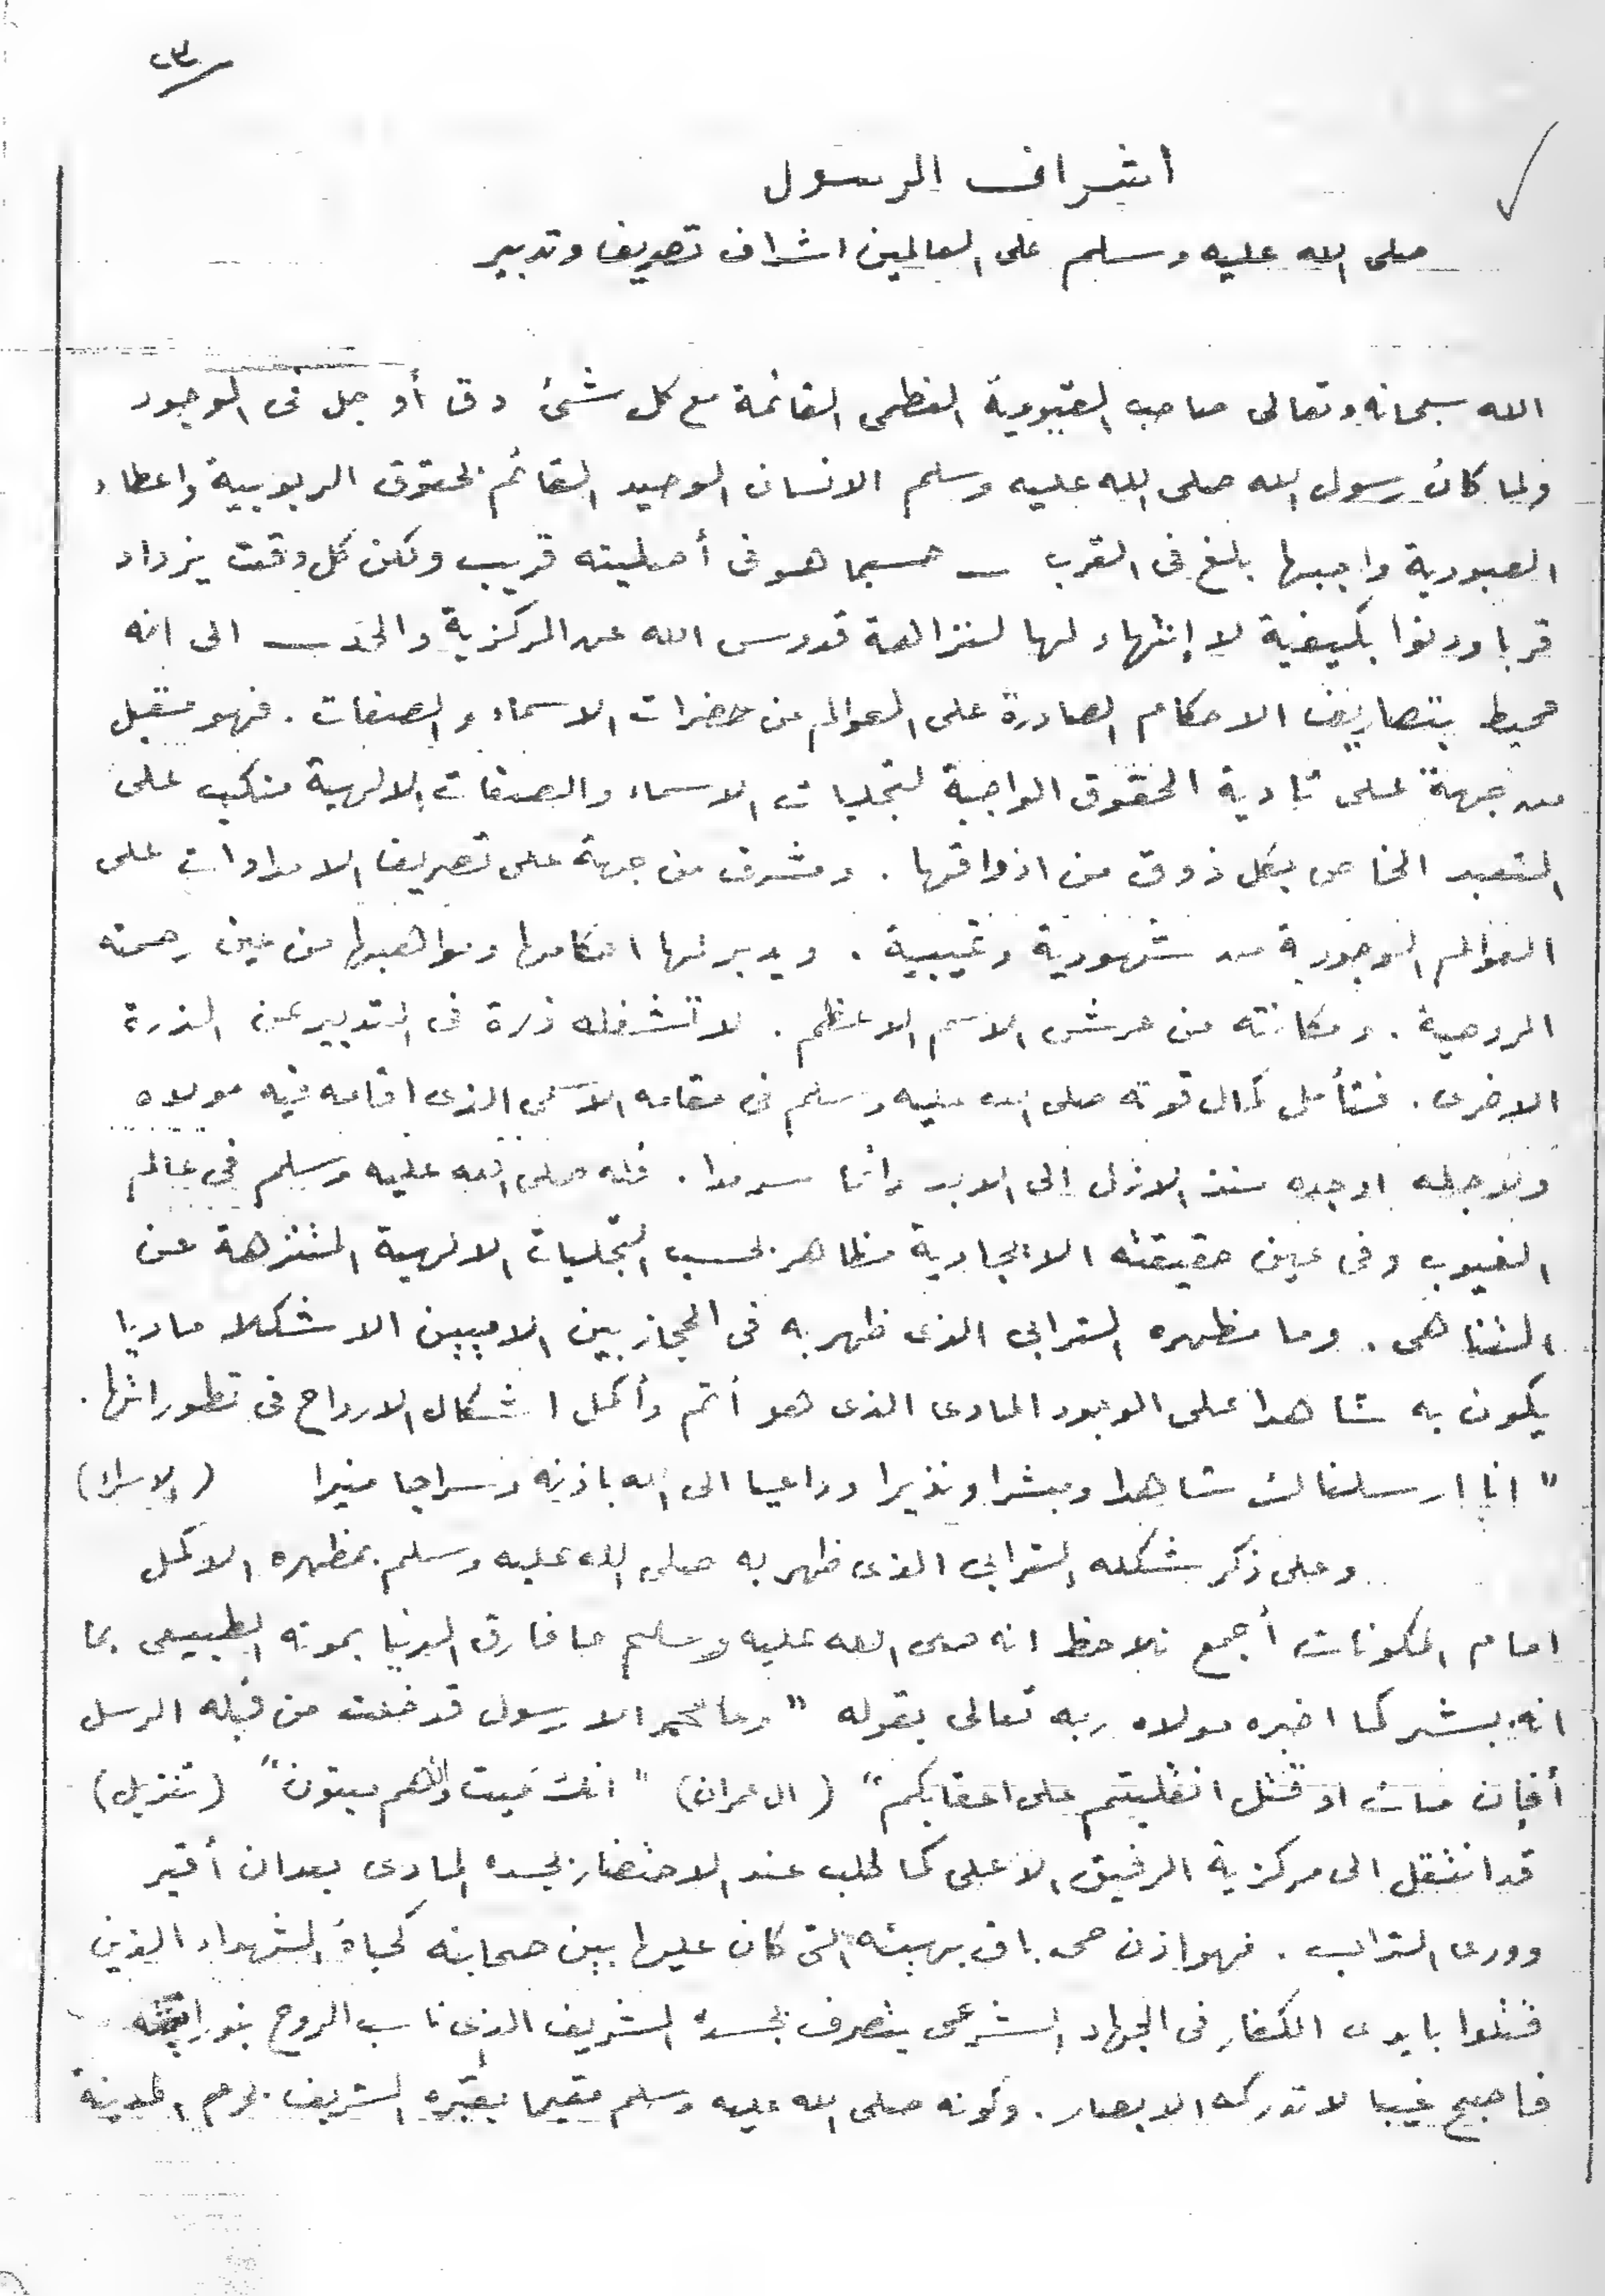 ٢٣
اشراف الرسول
صلى الله عليه وسلم على العالمين اشراف تصريف وتدبير
الله سبحانه وتعالى صاحب القيومية العظمى القائمة مع كل شئ دق أو جل فى الوجود
ولما كان رسول الله صلى الله عليه وسلم الانسان الوحيد القائم بحقوق الربوبية واعطاء
العبودية واجبها بلغ فى القرب ــ حسبما هو فى أصليته قريب ولكن كل وقت يزداد
قربا ودنوا بكيفية لا إنتهاء لها لنزاهة قدوس الله عن المركزية والحد ــ الى انه
محيط بتصاريف الاحكام الصادرة على العوالم من حضرات الاسماء والصفات . فهو مقبل
من جهة على تادية الحقوق الواجبة لتجليات الاسماء والصفات الالهية منكب على
التعبد الخاص بكل ذوق من اذواقها . ومشرف من جهة على تصريف الامدادات على
العوالم الوجودية من شهودية وغيبية . ويدبر لها احكامها ومواهبها من عين رحمته
الروحية . ومكانته من عرش الاسم الاعظم . لا تشغله ذرة فى التدبير عن الذرة
الاخرى . فتأمل كمال قوته صلى الله عليه وسلم فى مقامه الاسمى الذى اقامه فيه مولاه
ولاجله اوجده منذ الازل الى الابد دائما سرمدا . فله صلى الله عليه وسلم فى عالم
الغيوب وفى عين حقيقته الايجادية مظاهر بحسب التجليات الالهية المتنزهة عن
التناهى . وما مظهره الترابى الذى ظهر به فى الحجاز بين الاميين الا شكلا ماديا
يكون به شاهدا على الوجود المادى الذى هو أتم وأكمل اشكال الارواح فى تطوراتها .
" انا ارسلناك شاهدا ومبشرا ونذيرا وداعيا الى الله باذنه وسراجا منيرا ( )
وعلى ذكر شكله الترابى الذى ظهر به صلى الله عليه وسلم بمظهره الاكمل
امام المكونات أجمع نلاحظ انه صلى الله عليه وسلم ما فارق الدنيا بموته الطبيعى بما
انه بشر كما اخبره مولاه ربه تعالى بقوله " وما محمد الا رسول قد خلت من قبله الرسل
أفإن مات او قتل انقلبتم على اعقابكم " ( ال عمران ) " انك ميت وانهم ميتون " ( تنزيل )
قد انتقل الى مركزية الرفيق الاعلى كما طلب عند الاحتضار بجسده المادى بعد ان أقبر
وورى التراب . فهو اذن حى باق بهيئته التى كان عليها بين صحابته كحياة الشهداء الذين
قتلوا بايدى الكفار فى الجهاد الشرعى يتصرف بجسده الشريف الذى ناب الروح بنورانيته
فاصبح غيبا لا تدركه الابصار . وكونه صلى الله عليه وسلم مقيما بقبره الشريف بحرم المدينة